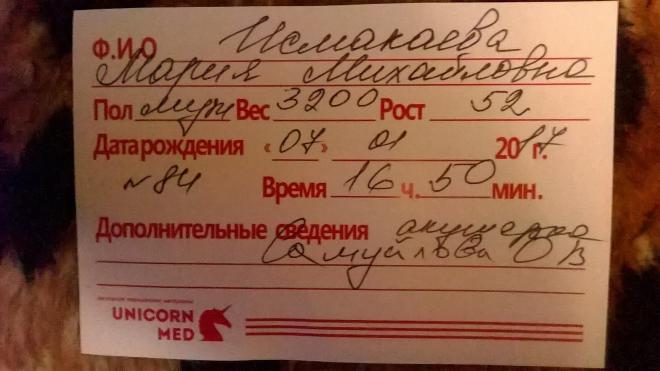 Ф.И.О Исмакаева
Мария Михайловна
Пол муж Вес 3200 Рост 52
Дата рождения «07» 01 2017 г.
№84 Время 16 ч. 50 мин.
Дополнительные сведения акушерка
Самуйлова О В
UNICORN
MED